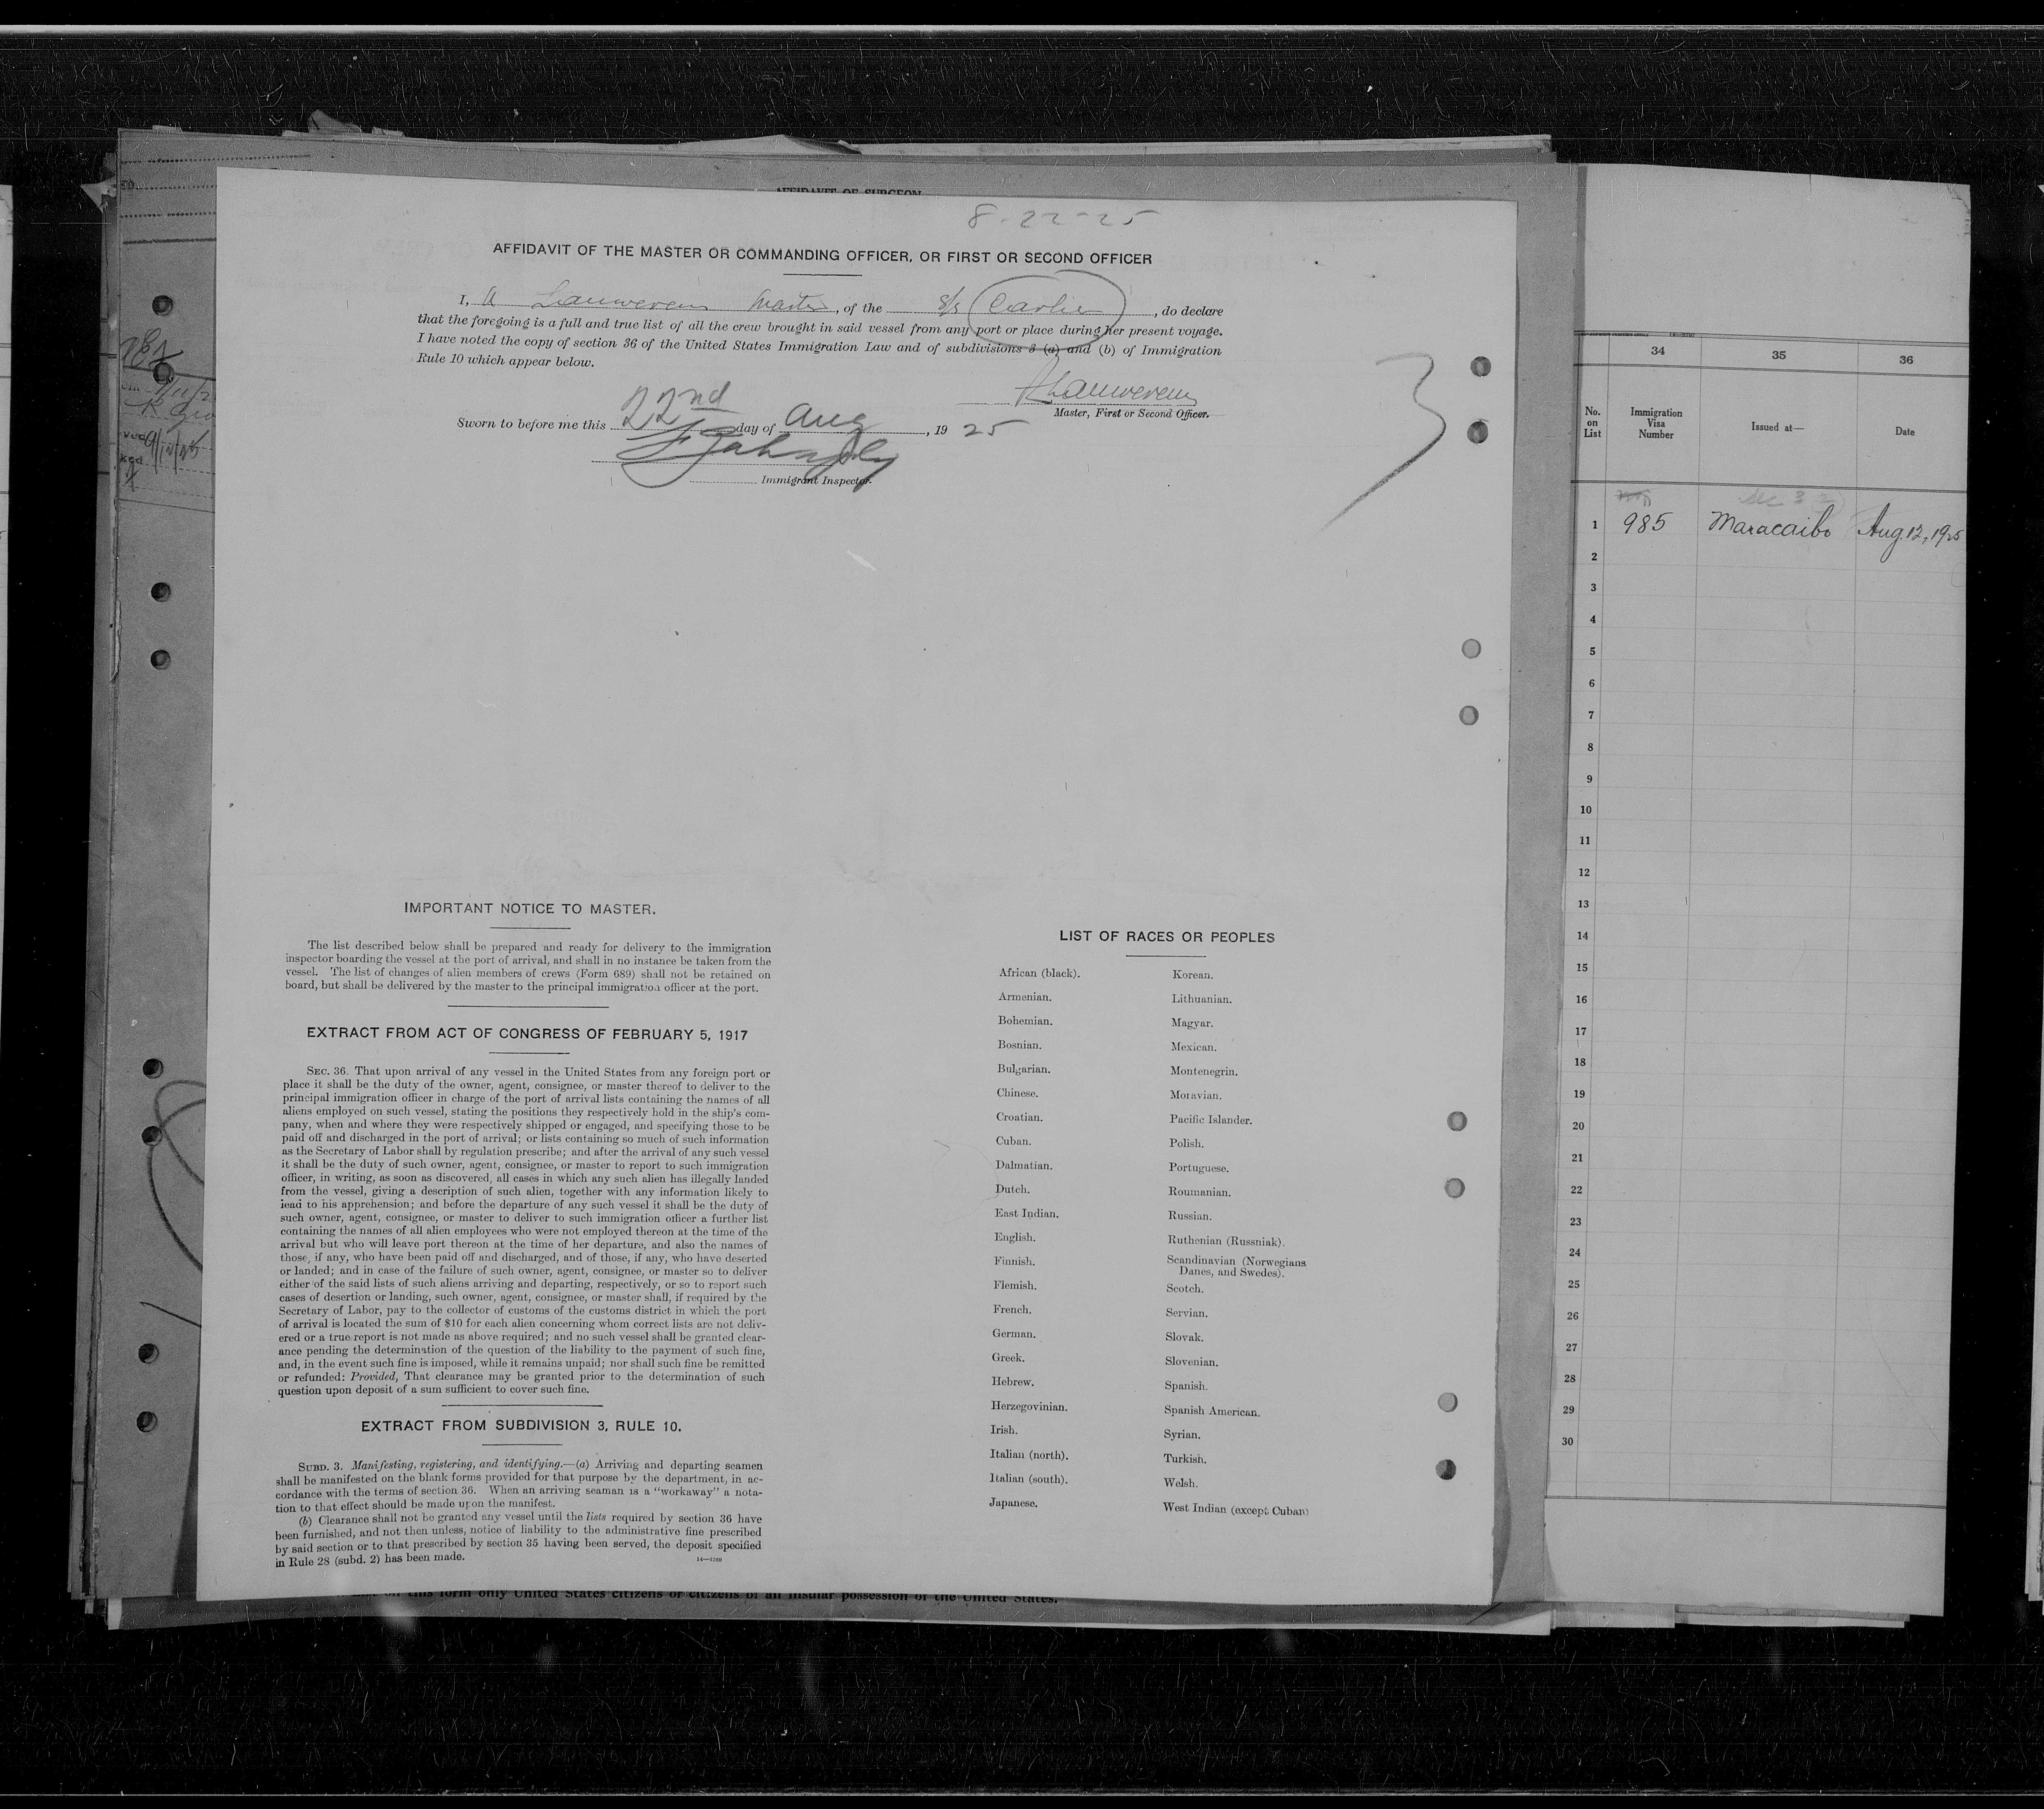 AFFIDAVIT OF SURGEON
8-22-25
AFFIDAVIT OF THE MASTER OR COMMANDING OFFICER, OR FIRST OR SECOND OFFICER
I, A Lauwereins Master, of the S/S Carlier, do declare
that the foregoing is a full and true list of all the crew brought in said vessel from any port or place during her present voyage.
I have noted the copy of section 36 of the United States Immigration Law and of subdivisions 3 (a) and (b) of Immigration
Rule 10 which appear below.
Master, First or Second Officer.
Sworn to before me this 22nd day of Aug, 1925
Immigrant Inspector.
3
IMPORTANT NOTICE TO MASTER.
The list described below shall be prepared and ready for delivery to the immigration
inspector boarding the vessel at the port of arrival, and shall in no instance be taken from the
vessel. The list of changes of alien members of crews (Form 689) shall not be retained on
board, but shall be delivered by the master to the principal immigration officer at the port.
EXTRACT FROM ACT OF CONGRESS OF FEBRUARY 5, 1917
SEC. 36. That upon arrival of any vessel in the United States from any foreign port or
place it shall be the duty of the owner, agent, consignee, or master thereof to deliver to the
principal immigration officer in charge of the port of arrival lists containing the names of all
aliens employed on such vessel, stating the positions they respectively hold in the ship's com-
pany, when and where they were respectively shipped or engaged, and specifying those to be
paid off and discharged in the port of arrival; or lists containing so much of such information
as the Secretary of Labor shall by regulation prescribe; and after the arrival of any such vessel
it shall be the duty of such owner, agent, consignee, or master to report to such immigration
officer, in writing, as soon as discovered, all cases in which any such alien has illegally landed
from the vessel, giving a description of such alien, together with any information likely to
lead to his apprehension; and before the departure of any such vessel it shall be the duty of
such owner, agent, consignee, or master to deliver to such immigration officer a further list
containing the names of all alien employees who were not employed thereon at the time of the
arrival but who will leave port thereon at the time of her departure, and also the names of
those, if any, who have been paid off and discharged, and of those, if any, who have deserted
or landed; and in case of the failure of such owner, agent, consignee, or master so to deliver
either of the said lists of such aliens arriving and departing, respectively, or so to report such
cases of desertion or landing, such owner, agent, consignee, or master shall, if required by the
Secretary of Labor, pay to the collector of customs of the customs district in which the port
of arrival is located the sum of $10 for each alien concerning whom correct lists are not deliv-
ered or a true report is not made as above required; and no such vessel shall be granted clear-
ance pending the determination of the question of the liability to the payment of such fine,
and, in the event such fine is imposed, while it remains unpaid; nor shall such fine be remitted
or refunded: Provided, That clearance may be granted prior to the determination of such
question upon deposit of a sum sufficient to cover such fine.
EXTRACT FROM SUBDIVISION 3, RULE 10.
SUBD. 3. Manifesting, registering, and identifying.—(a) Arriving and departing seamen
shall be manifested on the blank forms provided for that purpose by the department, in ac-
cordance with the terms of section 36. When an arriving seaman is a "workaway" a nota-
tion to that effect should be made upon the manifest.
(b) Clearance shall not be granted any vessel until the lists required by section 36 have
been furnished, and not then unless, notice of liability to the administrative fine prescribed
by said section or to that prescribed by section 35 having been served, the deposit specified
in Rule 28 (subd. 2) has been made.
14—1260
LIST OF RACES OR PEOPLES
African (black).
Armenian.
Bohemian.
Bosnian.
Bulgarian.
Chinese.
Croatian.
Cuban.
Dalmatian.
Dutch.
East Indian.
English.
Finnish.
Flemish.
French.
German.
Greek.
Hebrew.
Herzegovinian.
Irish.
Italian (north).
Italian (south).
Japanese.
Korean.
Lithuanian.
Magyar.
Mexican.
Montenegrin.
Moravian.
Pacific Islander.
Polish.
Portuguese.
Roumanian.
Russian.
Ruthenian (Russniak).
Scandinavian (Norwegians
Danes, and Swedes).
Scotch.
Servian.
Slovak.
Slovenian.
Spanish.
Spanish American.
Syrian.
Turkish.
Welsh.
West Indian (except Cuban)
this form only United States citizens or citizens of an insular possession of the United States.
34 35 36
No. on List
Immigration Visa Number
Issued at—
Date
sec 3 2)
1 985 Maracaibo Aug. 12, 1925
2
3
4
5
6
7
8
9
10
11
12
13
14
15
16
17
18
19
20
21
22
23
24
25
26
27
28
29
30